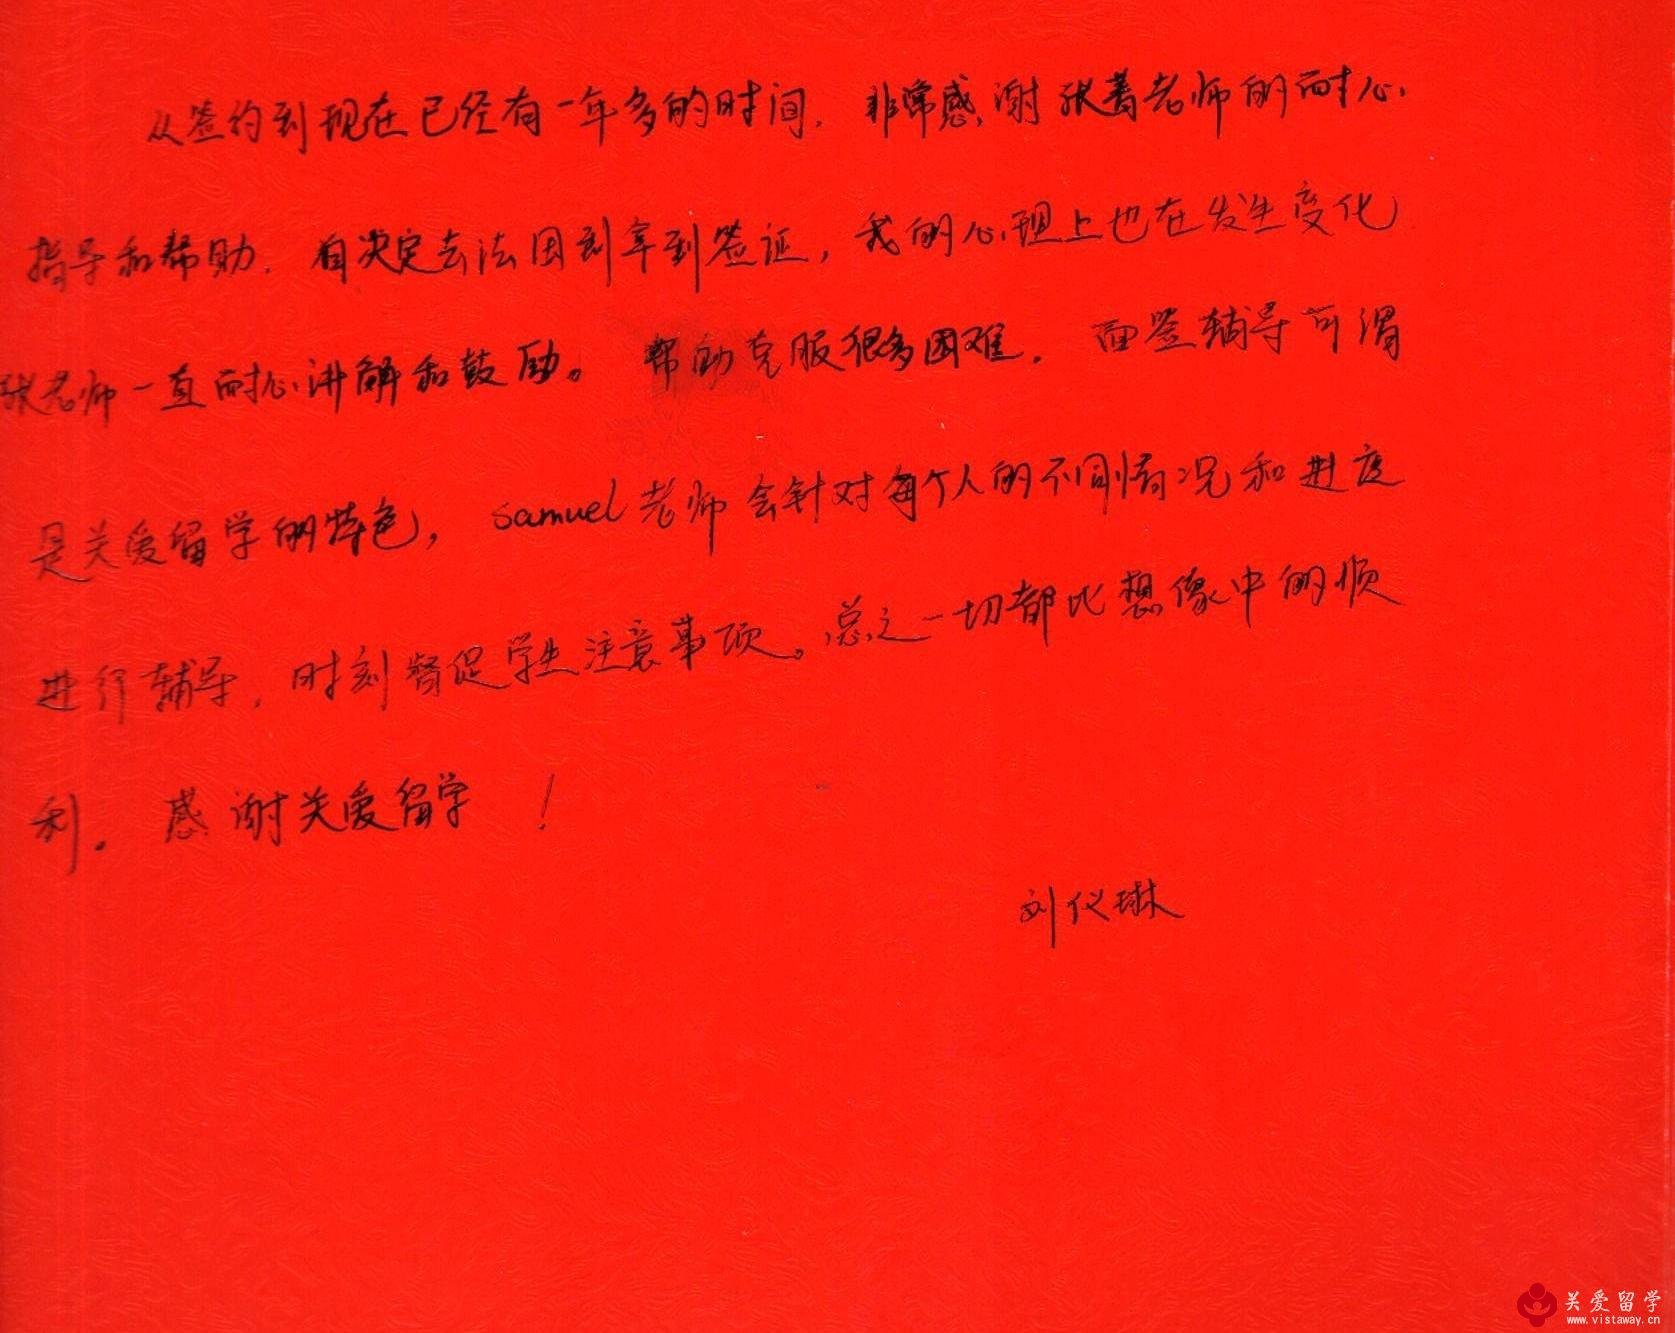 从签约到现在已经有一年多的时间. 非常感谢张菁老师的耐心
指导和帮助. 自决定去法国到拿到签证, 我的心理上也在发生变化
张老师一直耐心讲解和鼓励。帮助克服很多困难. 面签辅导可谓
是关爱留学的特色, samuel老师会针对每个人的不同情况和进度
进行辅导, 时刻督促学生注意事项。总之一切都比想像中的顺
利。感谢关爱留学！
刘仪琳
关爱留学
www.vistaway.cn